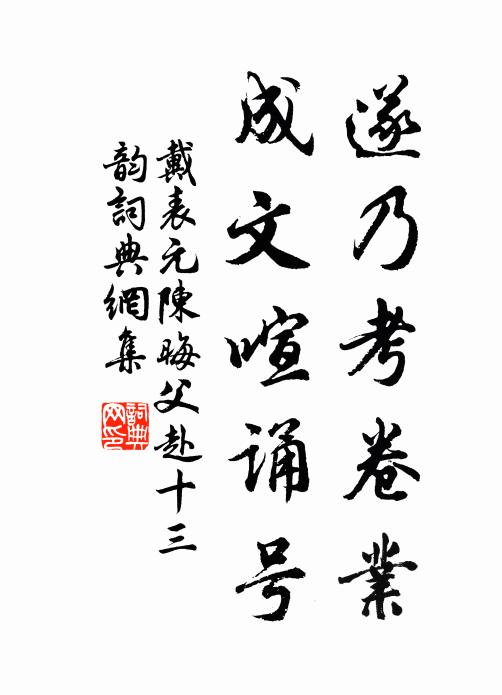 遂乃考卷業
成文喧誦号
戴表元陳晦父赴十三
韵詞典網集
詞典
网印